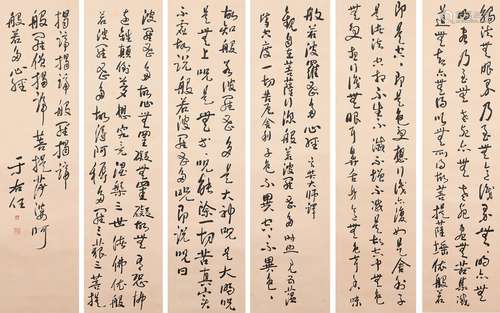 般若波羅蜜多心經 玄奘大師譯
觀自在菩薩行深般若波羅蜜多時照見五蘊
皆空度一切苦厄舍利子色不異空空不異色
色即是空空即是色受想行識亦復如是舍利子
是諸法空相不生不滅不垢不淨不增不減是故空中
無色無受想行識無眼耳鼻舌身意無色聲香味
觸法無眼界乃至無意識界無無明亦無
無明盡乃至無老死亦無老死盡無苦集滅
道無智亦無得以無所得故菩提薩埵依般若
波羅蜜多故心無罣礙無罣礙故無有恐怖
遠離顛倒夢想究竟涅槃三世諸佛依般
若波羅蜜多故得阿耨多羅三藐三菩提
故知般若波羅蜜多是大神咒是大明咒
是無上咒是無等等咒能除一切苦真實
不虛故說般若波羅蜜多咒即說咒曰
揭諦揭諦般羅揭諦
般羅僧揭諦菩提薩婆訶
般若多心經
于右任